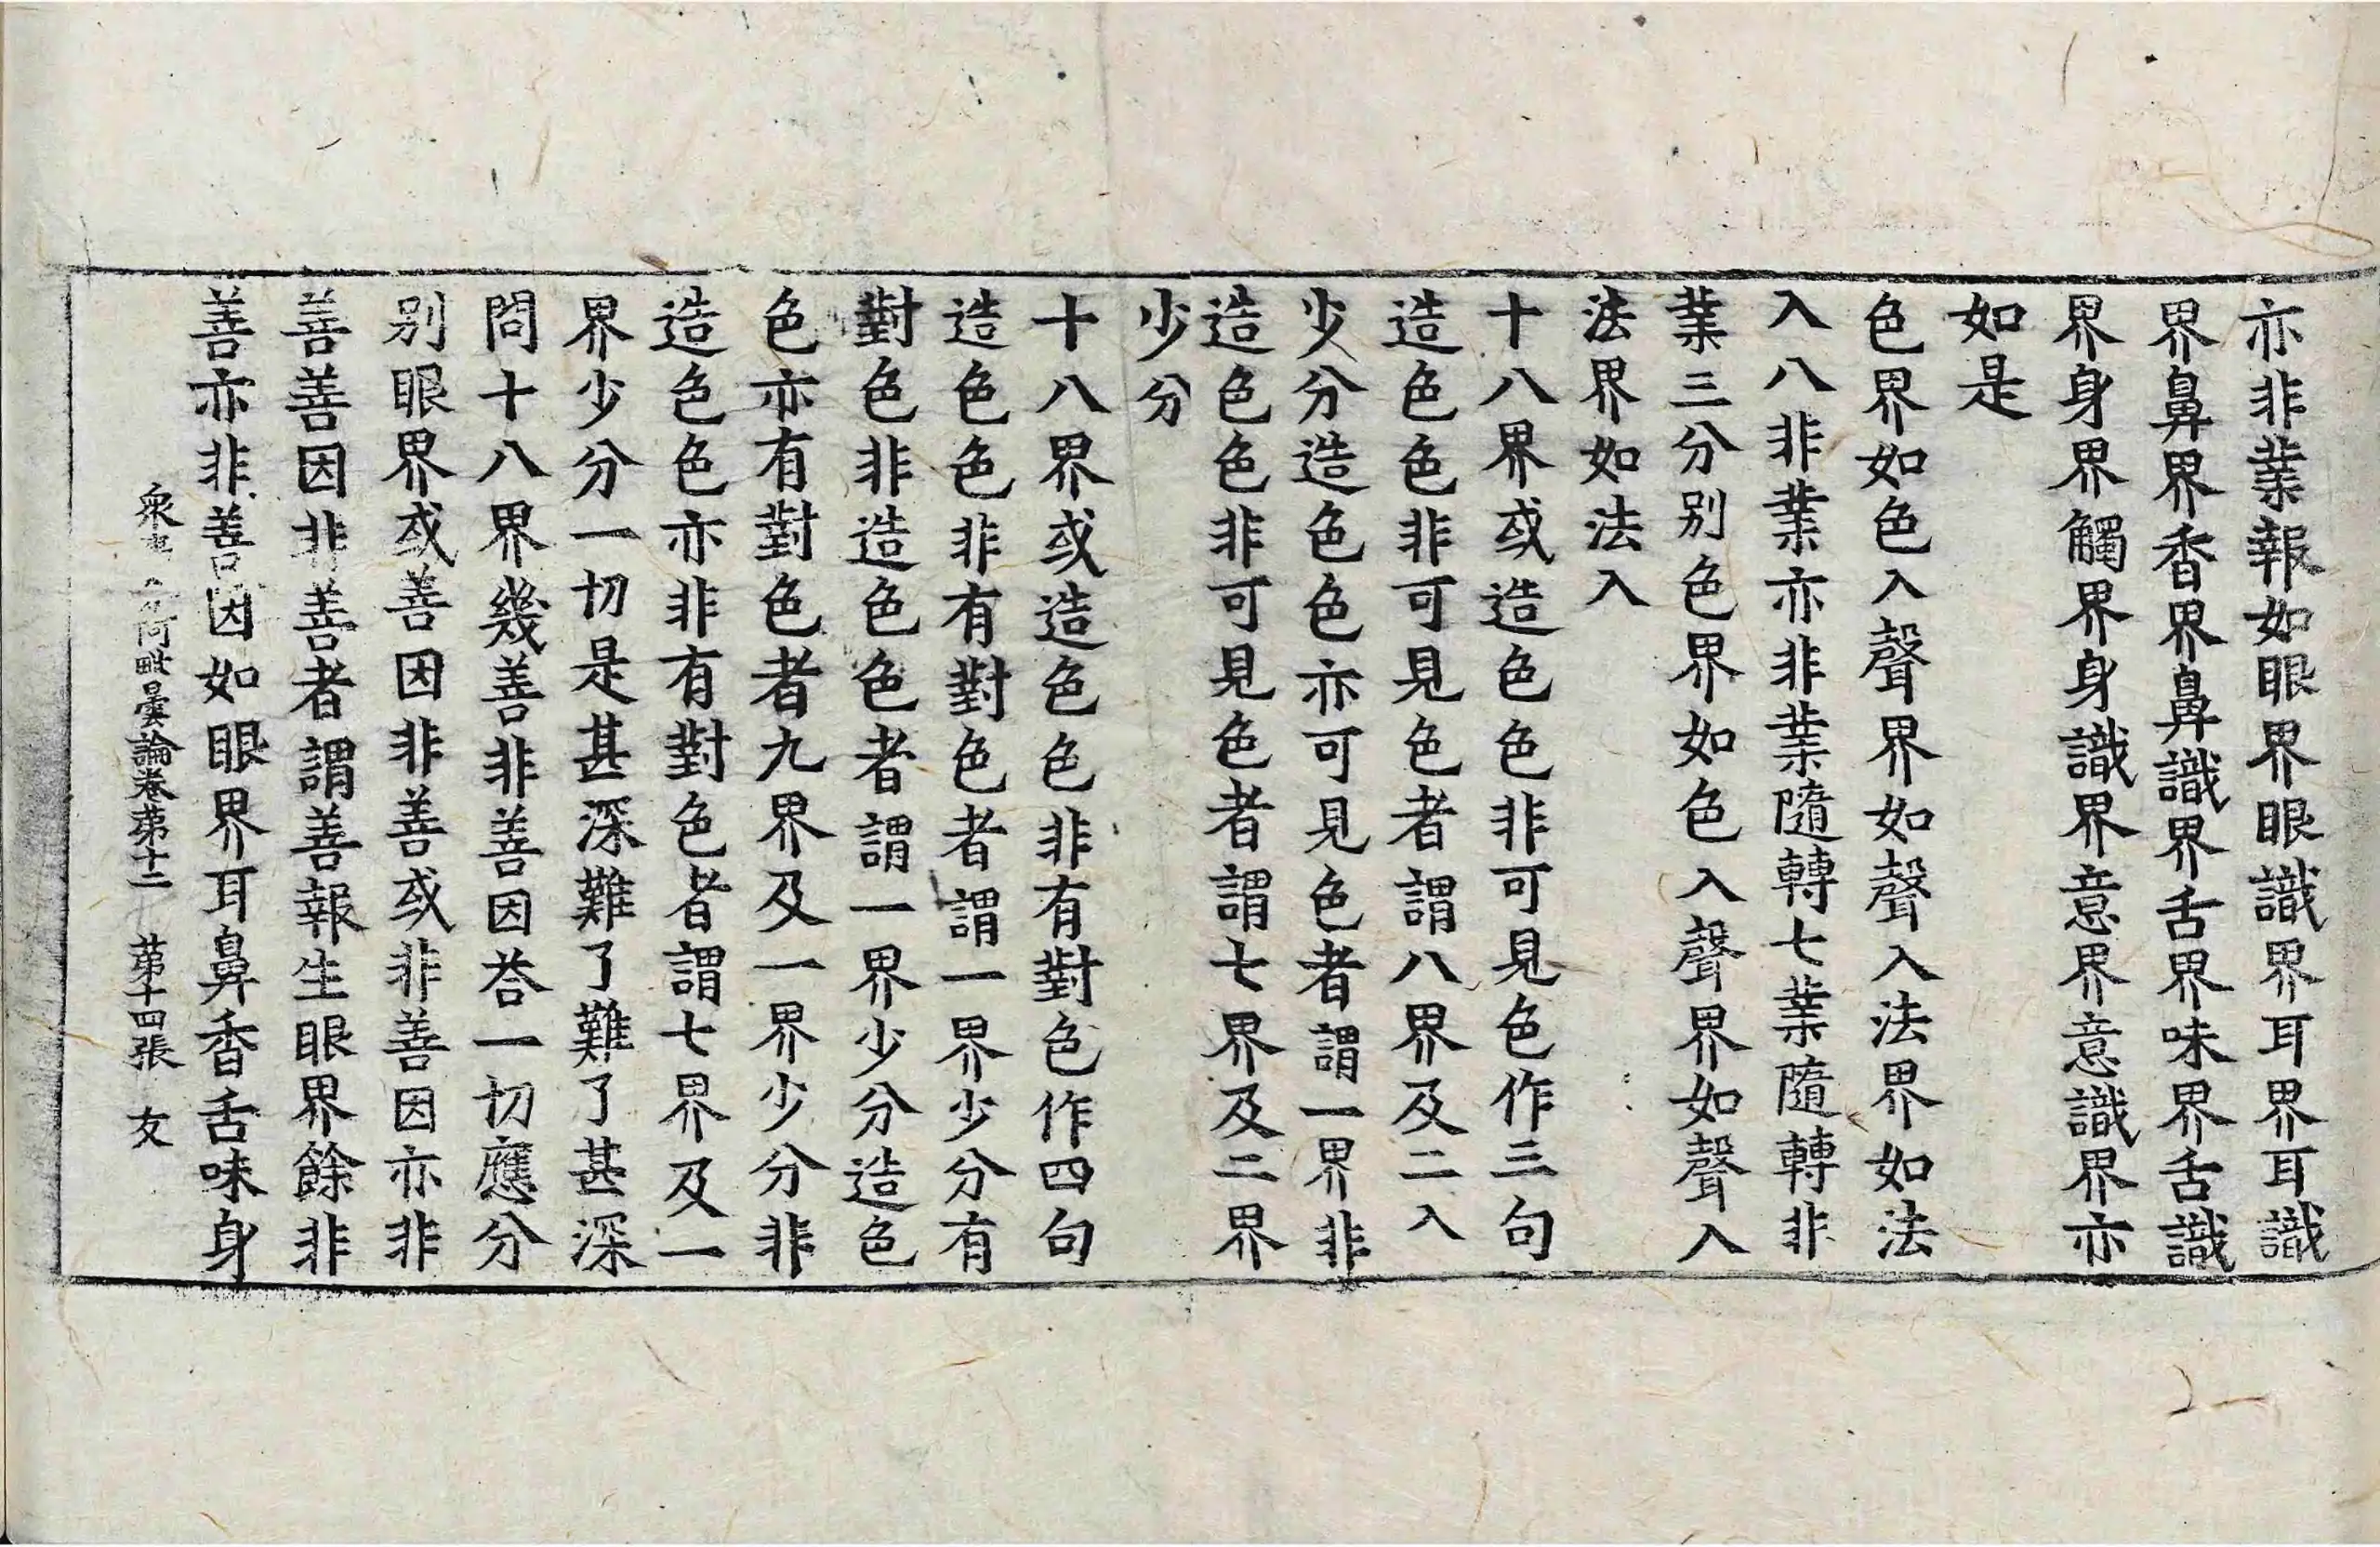 亦非業報如眼界眼識界耳界耳識
界鼻界香界鼻識界舌界味界舌識
界身界觸界身識界意界意識界亦
如是
色界如色入聲界如聲入法界如法
入八非業亦非業隨轉七業隨轉非
業三分別色界如色入聲界如聲入
法界如法入
十八界或造色色非可見色作三句
造色色非可見色者謂八界及二入
少分造色色亦可見色者謂一界非
造色色非可見色者謂七界及二界
少分
十八界或造色色非有對色作四句
造色色非有對色者謂一界少分有
對色非造色色者謂一界少分造色
色亦有對色者九界及一界少分非
造色色亦非有對色者謂七界及一
界少分一切是甚深難了難了甚深
問十八界幾善非善因荅一切應分
別眼界或善因非善或非善因亦非
善善因非善者謂善報生眼界餘非
善亦非善因如眼界耳鼻香舌味身
衆事阿毗曇論卷第十二 第十四張 友